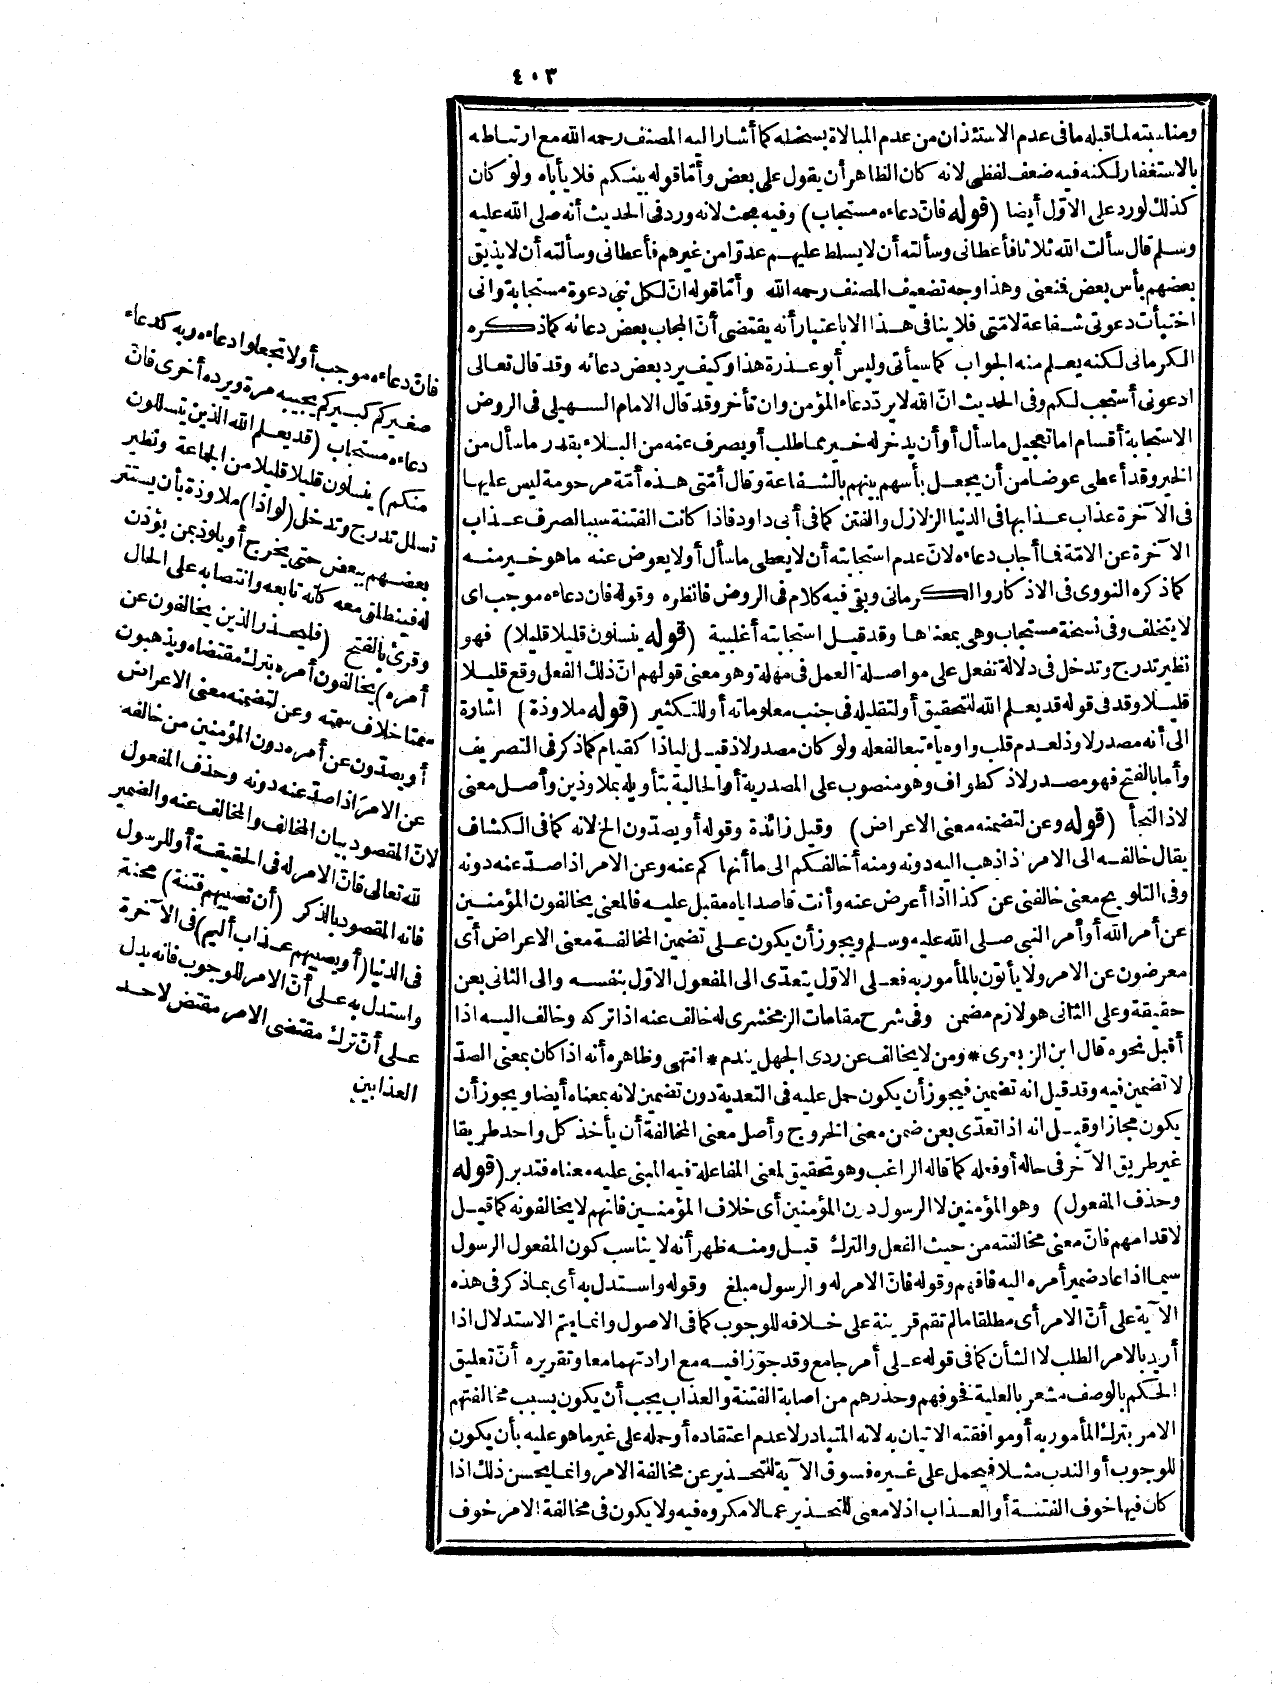 ٤٠٣
ومناسبته لما قبله ما فى عدم الاستئذان من عدم المبالاة بسخطه كما أشار اليه المصنف رحمه الله مع ارتباطه
بالاستغفار لكنه فيه ضعف لفظى لانه كان الظاهر أن يقول على بعض وأمّا قوله بينكم فلا يأباه ولو كان
كذلك لورد على الاوّل أيضا (قوله فانّ دعاءه مستجاب) وفيه بحث لانه ورد فى الحديث أنه صلى الله عليه
وسلم قال سألت الله ثلاثا فأعطانى وسألته أن لا يسلط عليهم عدوّا من غيرهم فأعطانى وسألته أن لا يذيق
بعضهم بأس بعض فنعنى وهذا وجه تضعيف المصنف رحمه الله وأمّا قوله انّ لكل نبى دعوة مستجابة وانى
اختبأت دعوتى شفاعة لامّتى فلا ينافى هذا الا باعتبار أنه يقتضى أنّ المجاب بعض دعائه كما ذكره
الكرمانى لكنه يعلم منه الجواب كما سيأتى وليس أبو عذرة هذا وكيف يرد بعض دعائه وقد قال تعالى
ادعونى أستجب لكم وفى الحديث انّ الله لا يردّ دعاء المؤمن وان تأخر وقد قال الامام السهيلى فى الروض
الاستجابة أقسام اما تعجيل ما سأل أو أن يدخر له خير مما طلب أو يصرف عنه من البلاء بقدر ما سأل من
الخير وقد أعطى عوضا من أن يجعل بأسهم بينهم بالشفاعة وقال أمّتى هذه أمّة مرحومة ليس عليها
فى الآخرة عذاب عذابها فى الدنيا الزلازل والفتن كما فى أبى داود فاذا كانت الفتنة سببا لصرف عذاب
الآخرة عن الامّة فما أجاب دعاءه لانّ عدم استجابته أن لا يعطى ما سأل أو لا يعوض عنه ما هو خير منه
كما ذكره النووى فى الاذكار والكرمانى وبقى فيه كلام فى الروض فانظره وقوله فان دعاءه موجب اى
لا يتخلف وفى نسخة مستجاب وهى بمعناها وقد قيل استجابته أغلبية (قوله ينسلون قليلا قليلا) فهو
نظير تدرج وتدخل فى دلالة تفعل على مواصلة العمل فى مهلة وهو معنى قولهم انّ ذلك الفعل وقع قليلا
قليلا وقد فى قوله قد يعلم الله للتحقيق أو لتقليله فى جنب معلوماته أو للتكثير (قوله ملاوذة) اشارة
الى أنه مصدر لاوذ لعدم قلب واوه ياء تبعا لفعله ولو كان مصدر لاذ قيل لياذا كقيام كما ذكر فى التصريف
وأما بالفتح فهو مصدر لاذ كطواف وهو منصوب على المصدرية أو الحالية بتأويله بملاوذين وأصل معنى
لاذ التجأ (قوله وعن لتضمنه معنى الاعراض) وقيل زائدة وقوله أو يصدّون الخ لانه كما فى الكشاف
يقال خالفه الى الامر اذا ذهب اليه دونه ومنه أخالفكم الى ما أنهاكم عنه وعن الامر اذا صدّ عنه دونه
وفى التلويح معنى خالفنى عن كذا اذا أعرض عنه وأنت قاصد اياه مقبل عليه فالمعنى يخالفون المؤمنين
عن أمر الله أو أمر النبى صلى الله عليه وسلم ويجوز أن يكون على تضمين المخالفة معنى الاعراض أى
معرضون عن الامر ولا يأتون بالمأمور به فعلى الاوّل يتعدّى الى المفعول الاوّل بنفسه والى الثانى بعن
حقيقة وعلى الثانى هو لازم مضمن وفى شرح مقامات الزمخشرى له خالف عنه اذا تركه وخالف اليه اذا
أقبل نحوه قال ابن الزبعرى * ومن لا يخالف عن ردى الجهل يندم * انتهى وظاهره أنه اذا كان بمعنى الصدّ
لا تضمين فيه وقد قيل انه تضمين فيجوز أن يكون حمل عليه فى التعدية دون تضمين لانه بمعناه أيضا ويجوز أن
يكون مجازا وقيل انه اذا تعدّى بعن ضمن معنى الخروج وأصل معنى المخالفة أن يأخذ كل واحد طريقا
غير طريق الآخر فى حاله أو فعله كما قاله الراغب وهو تحقيق لمعنى المفاعلة فيه المبنى عليه معناه فتدبر (قوله
وحذف المفعول) وهو المؤمنين لا الرسول دون المؤمنين أى خلاف المؤمنين فانهم لا يخالفونه كما قيل
لاقدامهم فانّ معنى مخالفته من حيث الفعل والترك قيل ومنه ظهر أنه لا يناسب كون المفعول الرسول
سيما اذا عاد ضمير أمره اليه فافهم وقوله فانّ الامر له والرسول مبلغ وقوله واستدل به أى بما ذكر فى هذه
الآية على أنّ الامر أى مطلقا ما لم تقم قرينة على خلافه للوجوب كما فى الاصول وانما يتمّ الاستدلال اذا
أريد بالامر الطلب لا الشأن كما فى قوله على أمر جامع وقد جوّزا فيه مع ارادتهما معا وتقريره أنّ تعليق
الحكم بالوصف مشعر بالعلية فخوفهم وحذرهم من اصابة الفتنة والعذاب يجب أن يكون بسبب مخالفتهم
الامر بترك المأمور به أو موافقته الاتيان به لانه المتبادر لا عدم اعتقاده أو حمله على غير ما هو عليه بأن يكون
للوجوب أو الندب مثلا فيحمل على غيره فسوق الآية للتحذير عن مخالفة الامر وانما يحسن ذلك اذا
كان فيها خوف الفتنة أو العذاب اذ لا معنى للتحذير عما لا مكروه فيه ولا يكون فى مخالفة الامر خوف
فانّ دعاءه موجب أو لا تجعلوا دعاءه ربه كدعاء
صغيركم كبيركم يجيبه مرة ويرده أخرى فانّ
دعاءه مستجاب (قد يعلم الله الذين يتسللون
منكم) ينسلون قليلا قليلا من الجماعة ونظير
تسلل تدرج وتدخل (لواذا) ملاوذة بأن يستتر
بعضهم ببعض حتى يخرج أو يلوذ بمن يؤذن
له فينطلق معه كأنه تابعه وانتصابه على الحال
وقرئ بالفتح (فليحذر الذين يخالفون عن
أمره) يخالفون أمره بترك مقتضاه ويذهبون
سمتا خلاف سمته وعن لتضمنه معنى الاعراض
أو يصدّون عن أمره دون المؤمنين من خالفه
عن الامر اذا صدّ عنه دونه وحذف المفعول
لانّ المقصود بيان المخالف والمخالف عنه والضمير
لله تعالى فانّ الامر له فى الحقيقة أو للرسول
فانه المقصود بالذكر (أن تصيبهم فتنة) محنة
فى الدنيا (أو يصيبهم عذاب أليم) فى الآخرة
واستدل به على أنّ الامر للوجوب فانه يدل
على أنّ ترك مقتضى الامر مقتض لاحد
العذابين